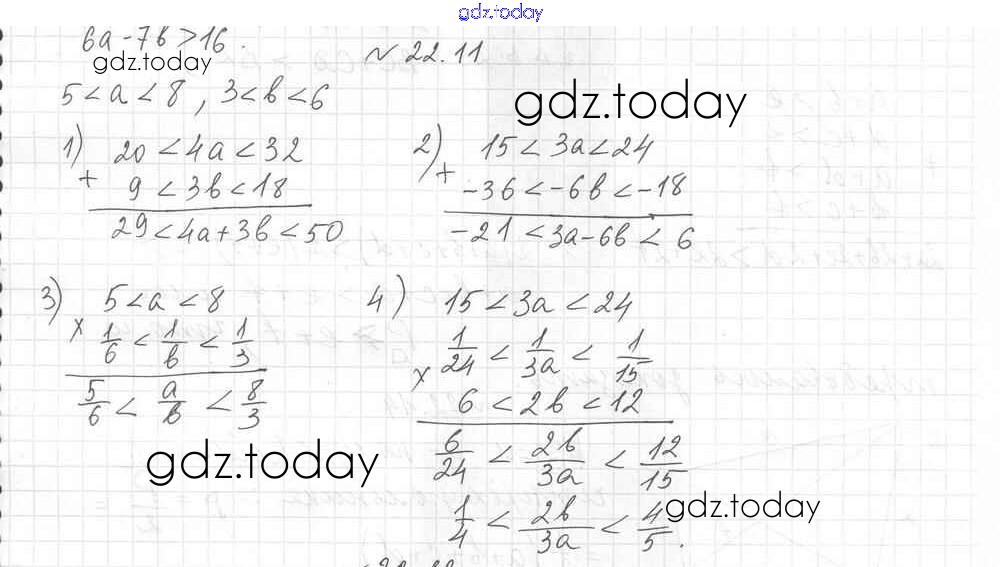 gdz.today
6a-7b>16.
№22.11
gdz.today
5<a<8, 3<b<6
gdz.today
1) 20<4a<32
+ 9<3b<18
29<4a+3b<50
2) 15<3a<24
+ -36<-6b<-18
-21<3a-6b<6
3) 5<a<8
× 1/6<1/b<1/3
5/6<a/b<8/3
gdz.today
4) 15<3a<24
1/24<1/3a<1/15
× 6<2b<12
6/24<2b/3a<12/15
1/4<2b/3a<4/5.
gdz.today